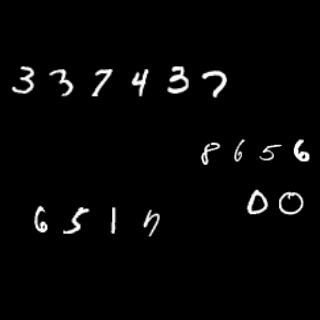 337437
8656
00
6517